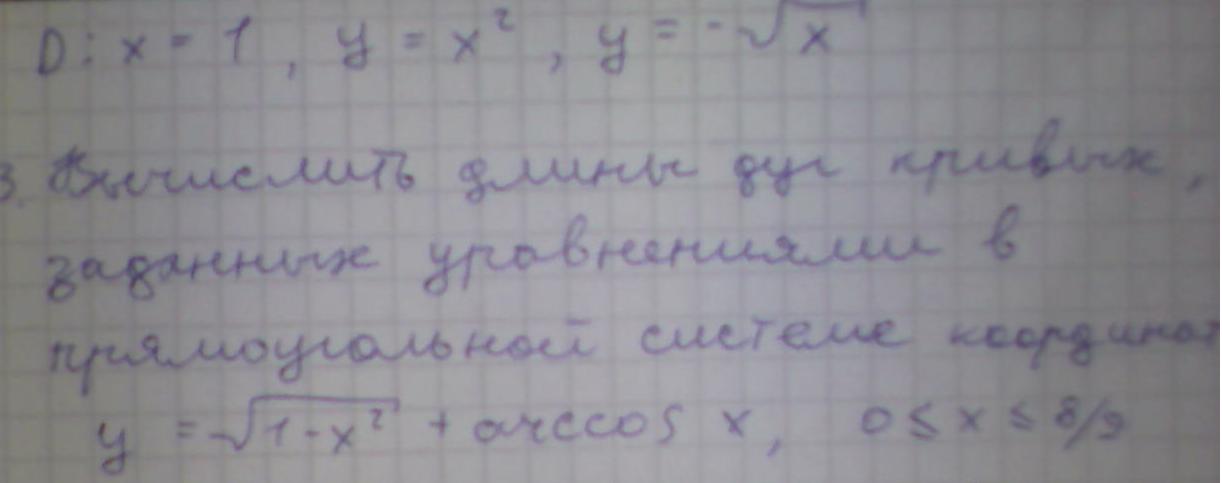 D: x = 1, y = x², y = -√x
3. Вычислить длины дуг кривых,
заданных уравнениями в
прямоугольной системе координат
y = √(1-x²) + arccos x, 0 ≤ x ≤ 8/9